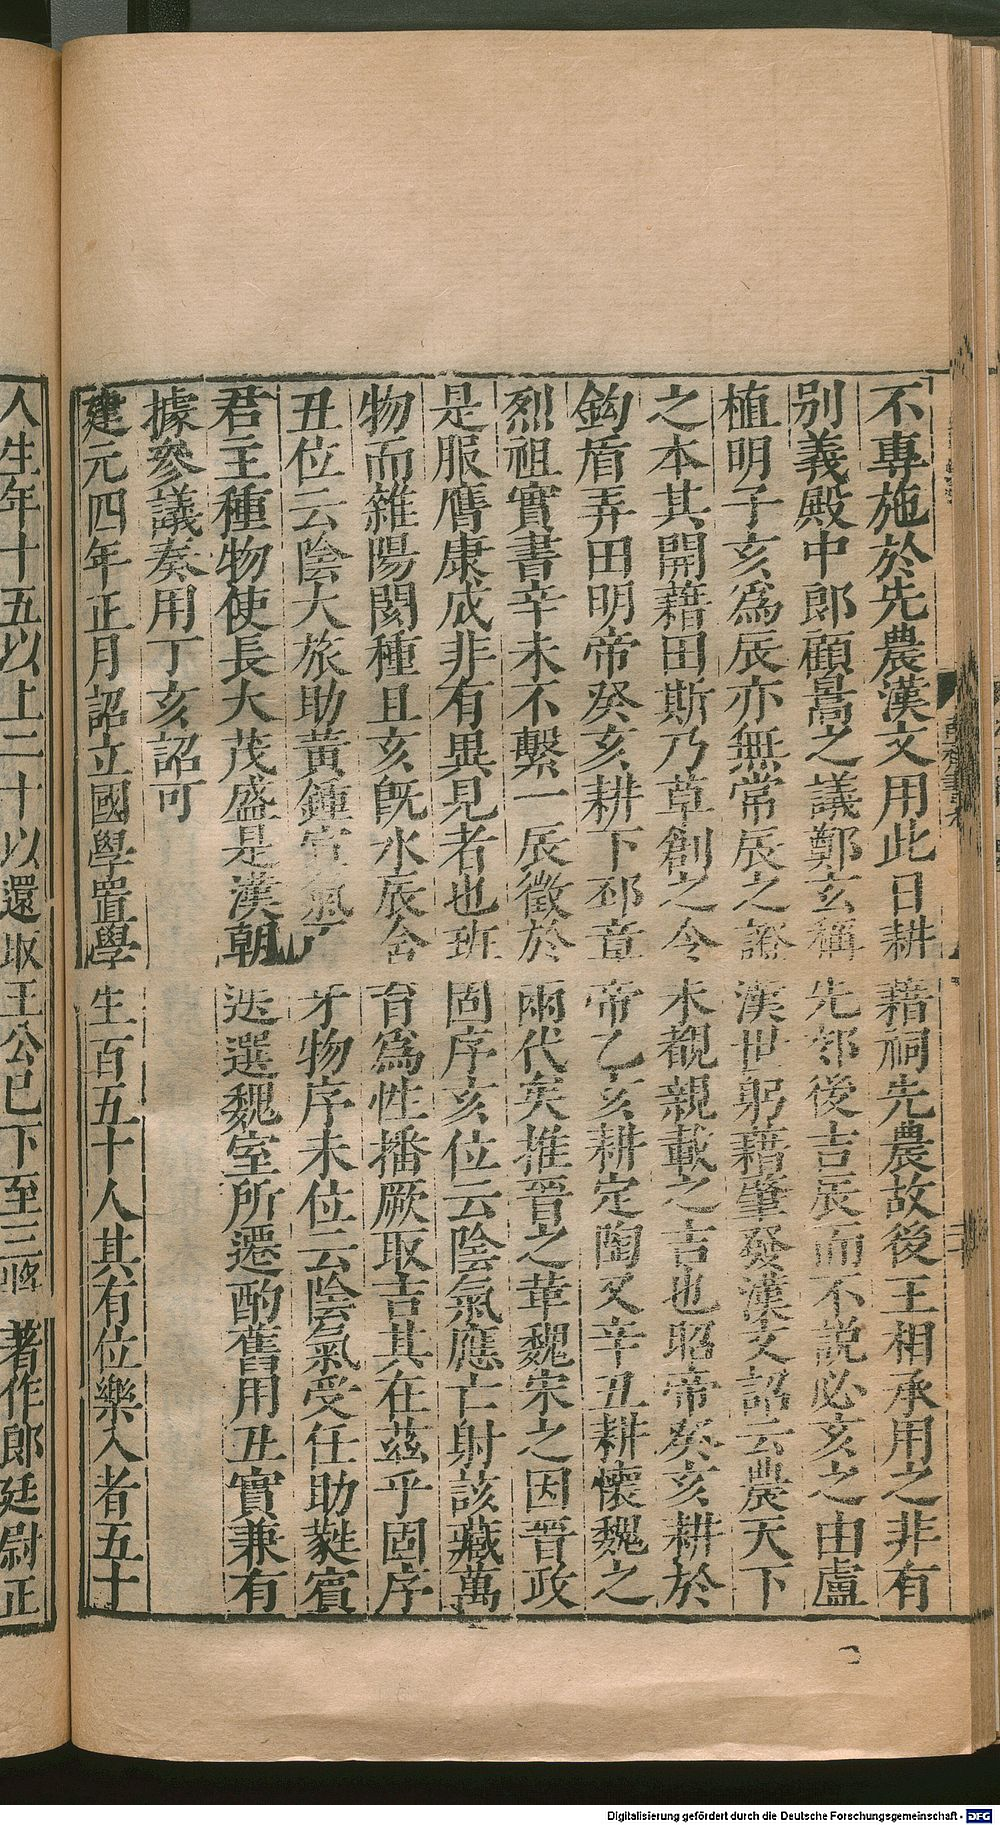 不專施於先農漢文用此日耕藉祠先農故後王相承用之非有
別義殿中郎顧暠之議鄭玄稱先郊後吉辰而不說必亥之由盧
植明子亥爲辰亦無常辰之證漢世躬藉肇發漢文詔云農天下
之本其開藉田斯乃草創之令未覩親載之吉也昭帝癸亥耕於
鈎盾弄田明帝癸亥耕下邳章帝乙亥耕定陶又辛丑耕懷魏之
烈祖實書辛未不繫一辰徵於兩代矣推晉之革魏宋之因晉政
是服膺康成非有異見者也班固序亥位云陰氣應亡射該藏萬
物而雜陽閡種且亥旣水辰含育爲性播厥取吉其在茲乎固序
丑位云陰大旅助黃鍾宣氣
牙物序未位云陰氣受任助蕤賓
君主種物使長大茂盛是漢朝迭選魏室所遷酌舊用丑實兼有
據參議奏用丁亥詔可
建元四年正月詔立國學置學生百五十人其有位樂入者五十
人生年十五以上二十以還取王公已下至三將著作郎廷尉正
Digitalisierung gefördert durch die Deutsche Forschungsgemeinschaft - DFG